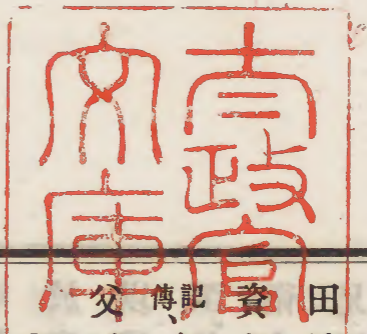 太政官
文庫
田
資
記
傳、
父